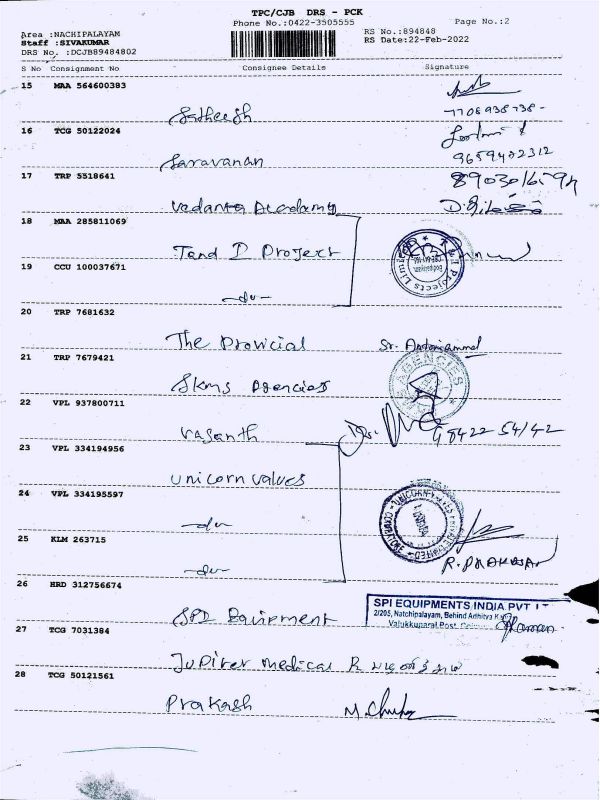 TPC/CJB DRS - PCK
Phone No.:0422-3505555
Page No.:2
Area :NACHIPALAYAM
Staff :SIVAKUMAR
DRS No. :DCJB89484802
RS No.:894848
RS Date:22-Feb-2022
S No Consignment No Consignee Details Signature
15 MAA 564600383
Satheesh
16 TCG 50122024
Saravanan
9659402312
17 TRP 5518641
Vedanta Academy
18 MAA 285811069
T and I Project
19 CCU 100037671
-do-
20 TRP 7681632
The Provicial Sr. Antoniammal
21 TRP 7679421
Skms Agencies
AGENCIES
22 VPL 937800711
Vasanth 98422 54142
23 VPL 334194956
Unicorn Valves
24 VPL 334195597
-do-
25 KLM 263715
-do- R. PRAKASH
26 HRD 312756674
SPI Equipment
SPI EQUIPMENTS INDIA PVT
2/205, Natchipalayam, Behind Adhitya
Valukkuparai Post
27 TCG 7031384
Jupiter medical
28 TCG 50121561
Prakash